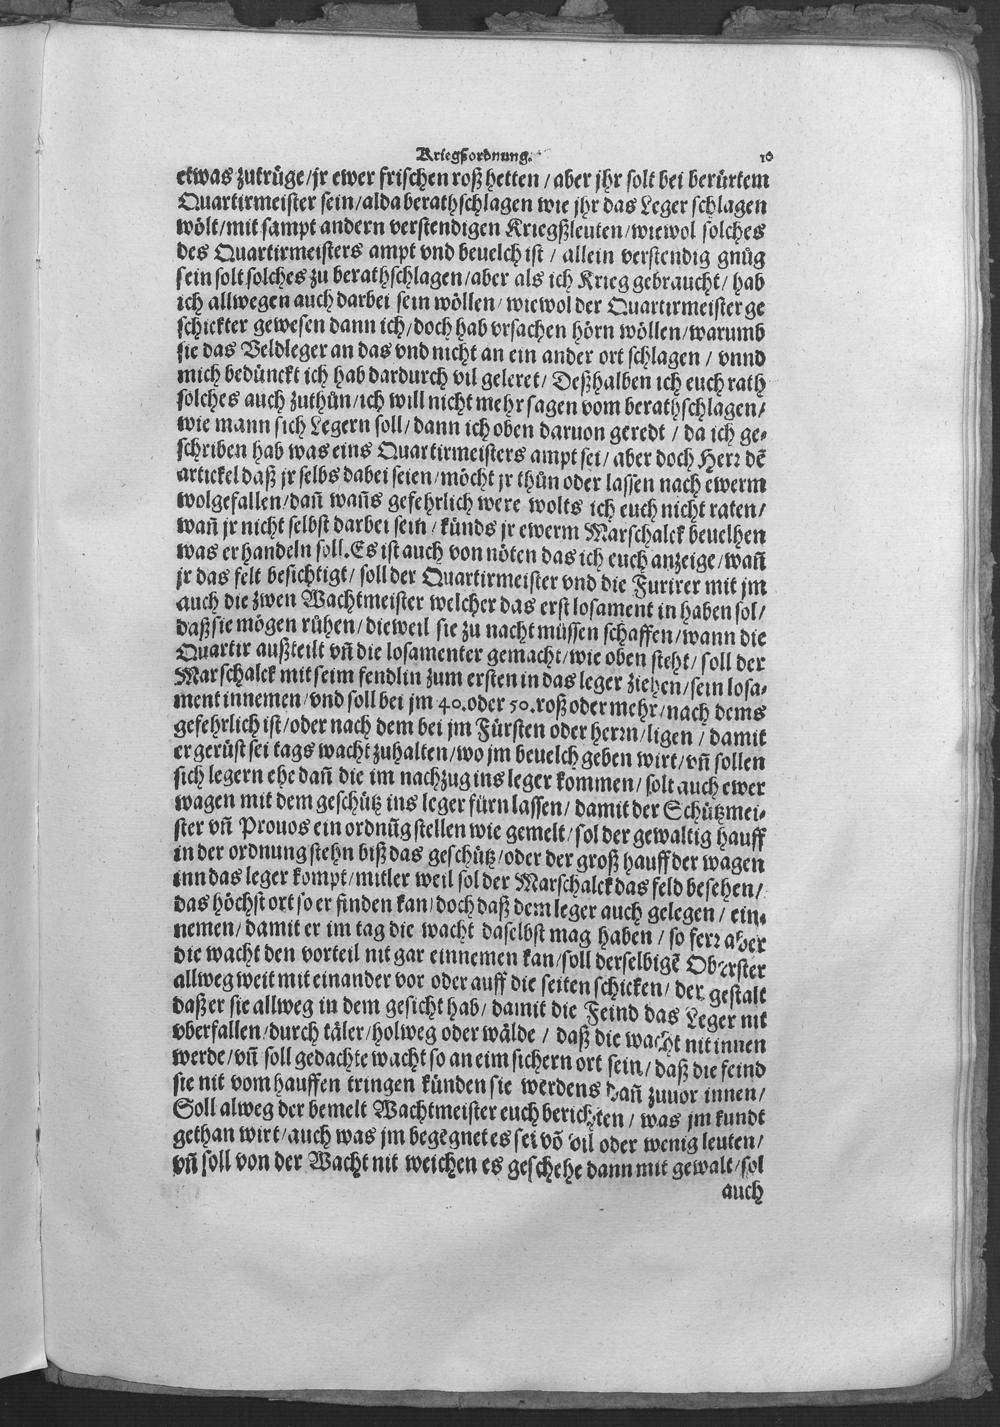 Kriegßordnung. 10
etwas zutrůge/jr ewer frischen roß hetten/aber jhr solt bei berürtem
Quartirmeister sein/alda berathschlagen wie jhr das Leger schlagen
wölt/mit sampt andern verstendigen Kriegßleuten/wiewol solches
des Quartirmeisters ampt vnd beuelch ist / allein verstendig gnůg
sein solt solches zu berathschlagen/aber als ich Krieg gebraucht/ hab
ich allwegen auch darbei sein wöllen/ wiewol der Quartirmeister ge
schickter gewesen dann ich/doch hab vrsachen hörn wöllen/warumb
sie das Veldleger an das vnd nicht an ein ander ort schlagen / vnnd
mich bedünckt ich hab dardurch vil geleret/ Deßhalben ich euch rath
solches auch zuthůn/ich will nicht mehr sagen vom berathschlagen/
wie mann sich Legern soll/dann ich oben daruon geredt / da ich ge-
schriben hab was eins Quartirmeisters ampt sei/aber doch Herr dē
artickel daß jr selbs dabei seien/möcht jr thůn oder lassen nach ewerm
wolgefallen/dañ wañs gefehrlich were wolts ich euch nicht raten/
wañ jr nicht selbst darbei sein/künds jr ewerm Marschalck beuelhen
was er handeln soll. Es ist auch von nöten das ich euch anzeige/wañ
jr das felt besichtigt/soll der Quartirmeister vnd die Furirer mit jm
auch die zwen Wachtmeister welcher das erst losament in haben sol/
daß sie mögen růhen/dieweil sie zu nacht müssen schaffen/wann die
Quartir außteilt vñ die losamenter gemacht/wie oben steht/soll der
Marschalck mit seim fendlin zum ersten in das leger ziehen/sein losa-
ment innemen/vnd soll bei jm 40. oder 50. roß oder mehr/nach dems
gefehrlich ist/oder nach dem bei jm Fürsten oder herrn/ligen/damit
er gerüst sei tags wacht zuhalten/wo jm beuelch geben wirt/vñ sollen
sich legern ehe dañ die im nachzug ins leger kommen/solt auch ewer
wagen mit dem geschütz ins leger fürn lassen/damit der Schützmei-
ster vñ Prouos ein ordnũg stellen wie gemelt/sol der gewaltig hauff
in der ordnung stehn biß das geschütz/oder der groß hauff der wagen
inn das leger kompt/mitler weil sol der Marschalck das feld besehen/
das höchst ort so er finden kan/doch daß dem leger auch gelegen/ein-
nemen/damit er im tag die wacht daselbst mag haben/so ferr aber
die wacht den vorteil nit gar einnemen kan/soll derselbigē Oberster
allweg weit mit einander vor oder auff die seiten schicken/der gestalt
daß er sie allweg in dem gesicht hab/damit die Feind das Leger nit
vberfallen/durch täler/holweg oder wälde / daß die wacht nit innen
werde/vñ soll gedachte wacht so an eim sichern ort sein/daß die feind
sie nit vom hauffen tringen künden sie werdens dañ zuuor innen/
Soll alweg der bemelt Wachtmeister euch berichten/was jm kundt
gethan wirt/auch was jm begegnet es sei võ vil oder wenig leuten/
vñ soll von der Wacht nit weichen es geschehe dann mit gewalt/sol
auch